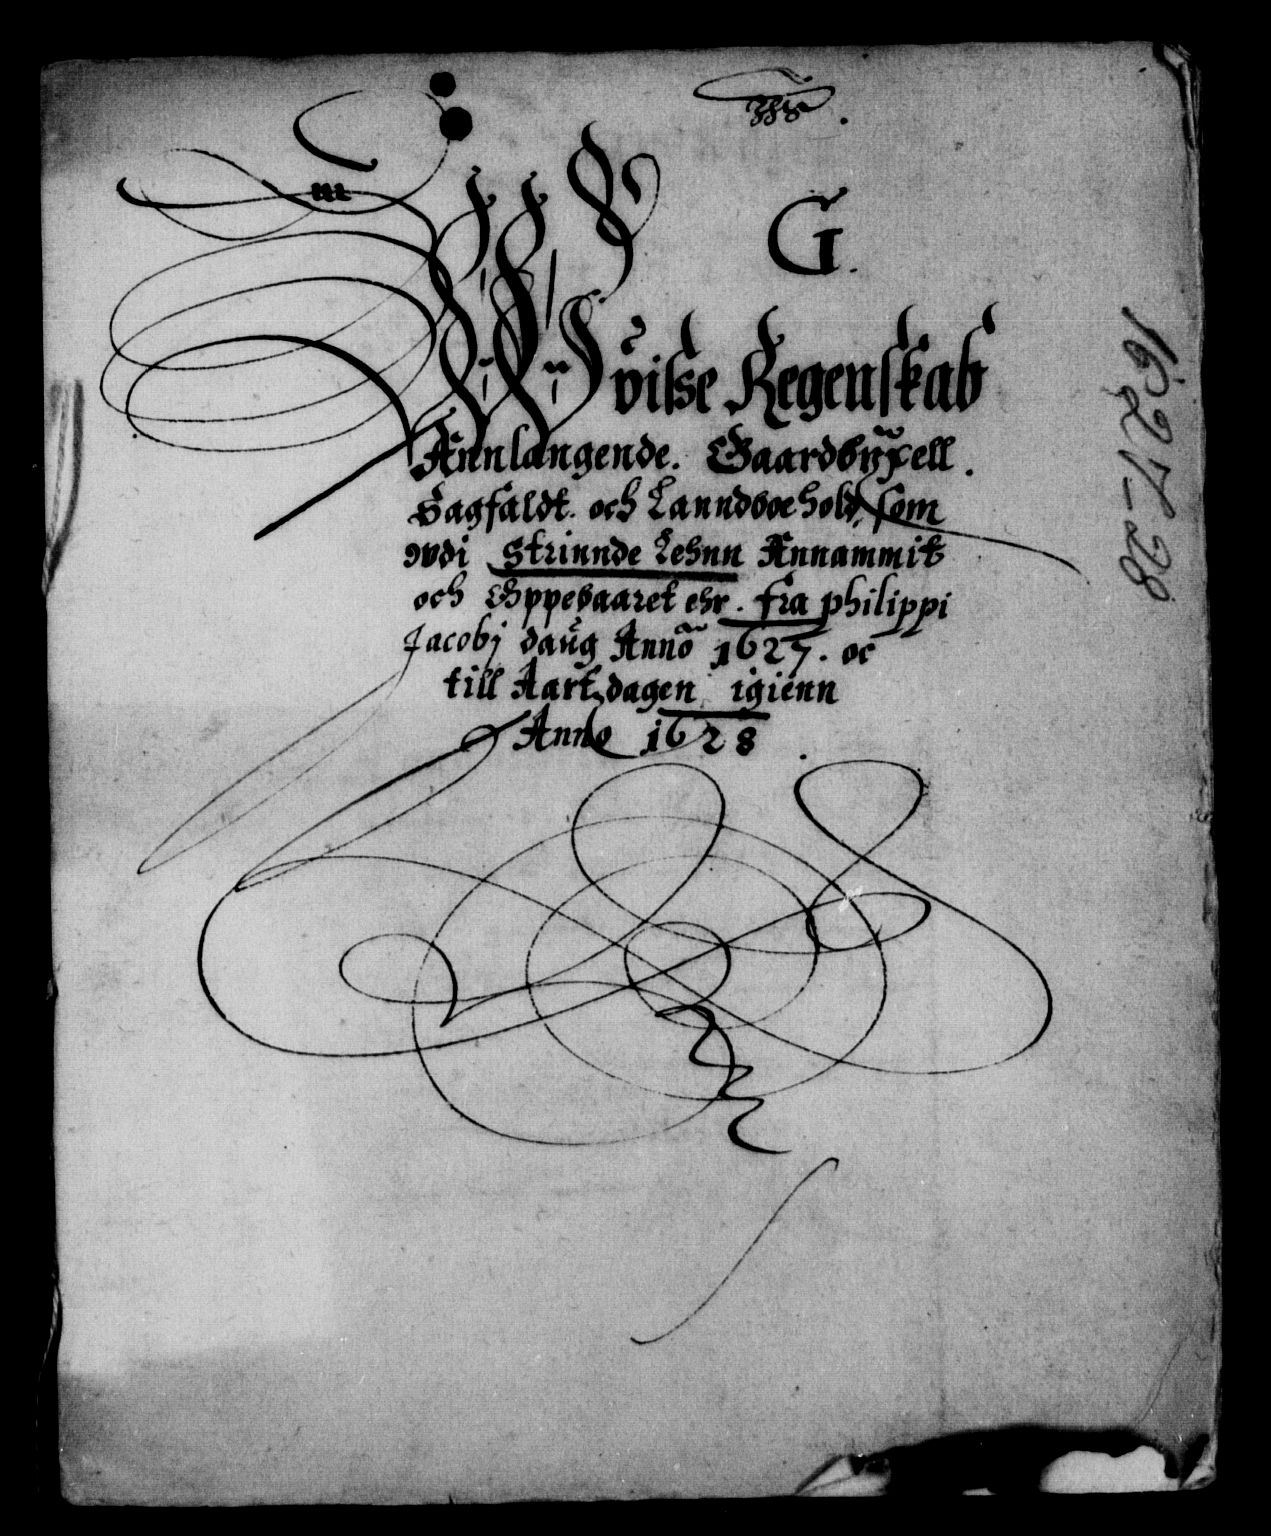 G.
Wvisse Regenskab
Annlangende. Gaardbÿxell.
Sagfaldt. och Lanndboehold, som
vdi Strinnde Lehnn Annammit
och Oppebaaret ehr. fra philippi
Jacobj daŭg Anno 1627. oc
till Aartzdagen igienn
Anno 1628.
1627-28